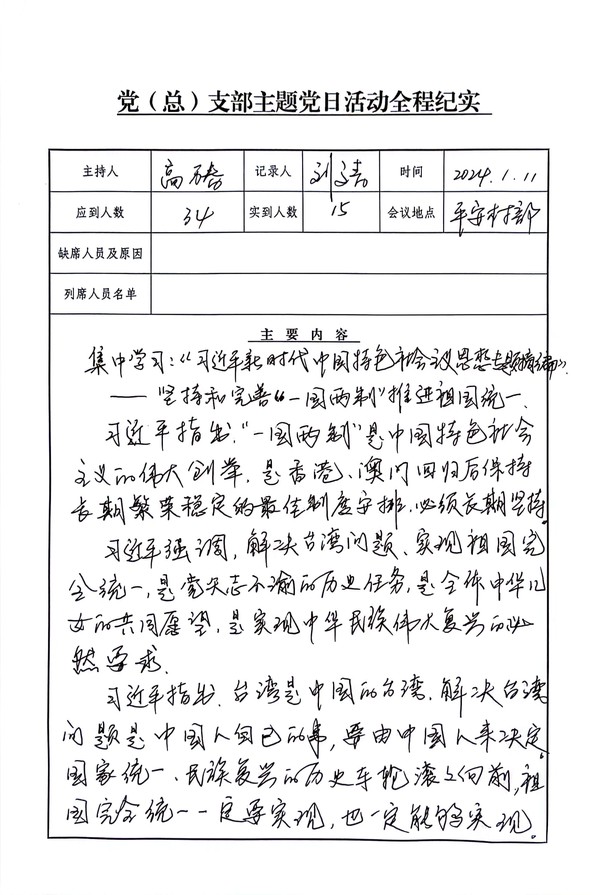 党（总）支部主题党日活动全程纪实
主持人 高 记录人 刘 时间 2024.1.11
应到人数 34 实到人数 15 会议地点 平安村部
缺席人员及原因
列席人员名单
主要内容
集中学习：“《习近平新时代中国特色社会主义思想专题摘编》”
——坚持和完善“一国两制”推进祖国统一.
习近平指出.“一国两制”是中国特色社会
主义的伟大创举，是香港、澳门回归后保持
长期繁荣稳定的最佳制度安排.必须长期坚持.
习近平强调，解决台湾问题、实现祖国完
全统一，是党矢志不渝的历史任务，是全体中华儿
女的共同愿望，是实现中华民族伟大复兴的必
然要求.
习近平指出.台湾是中国的台湾.解决台湾
问题是中国人自己的事，要由中国人来决定.
国家统一、民族复兴的历史车轮滚滚向前，祖
国完全统一一定要实现，也一定能够实现.